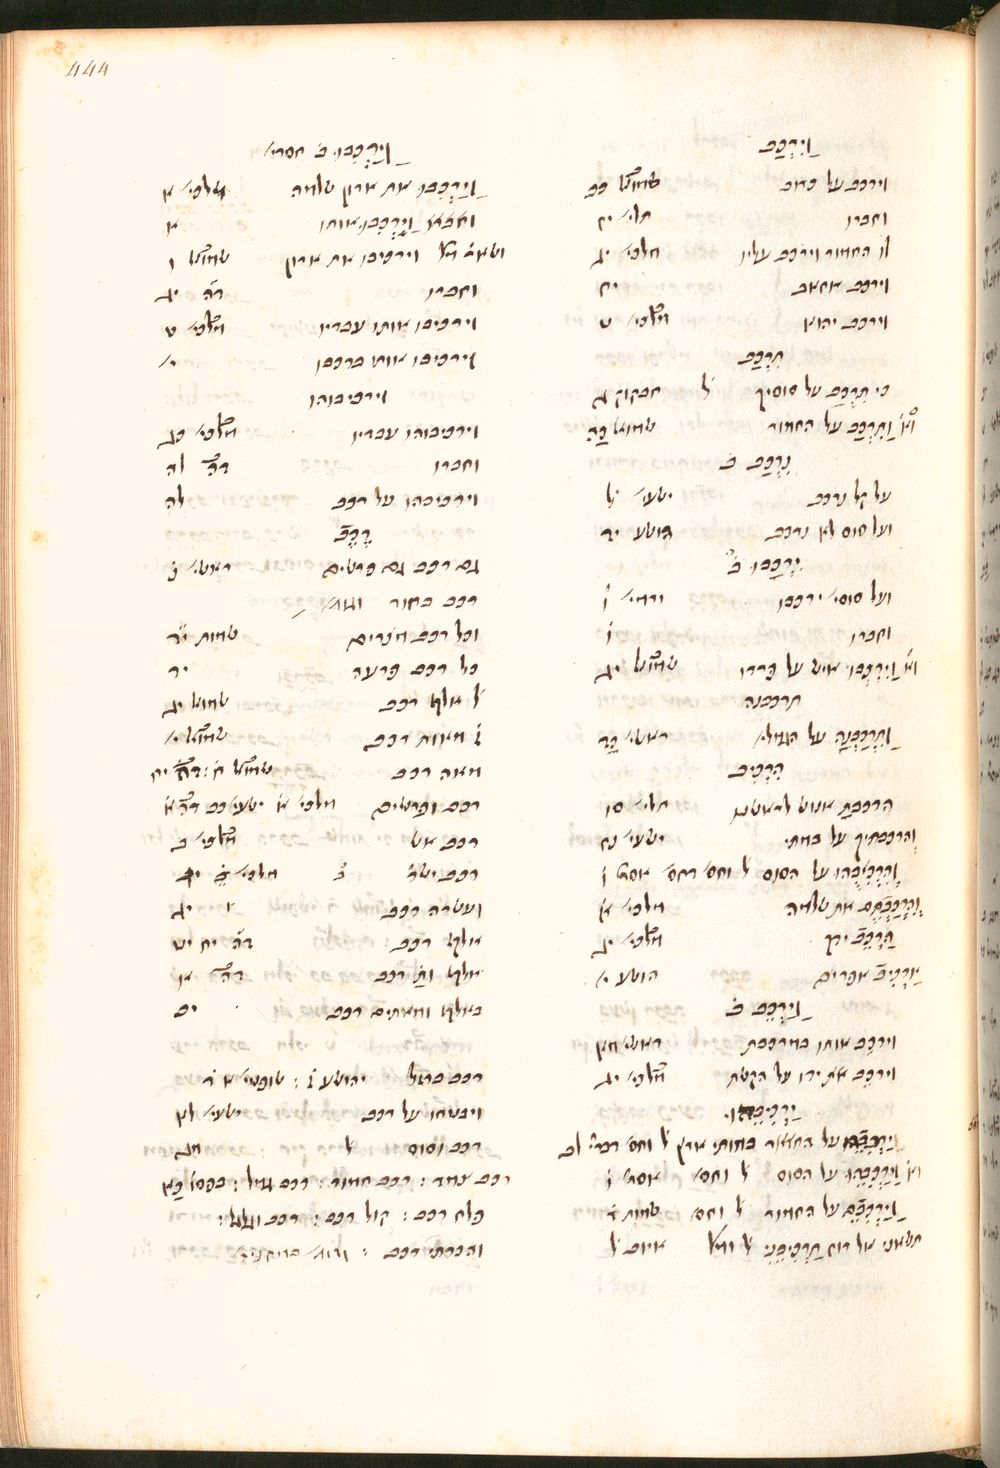 444
וַיִּרְכַּב
וירכב על כרוב שמוא̇ל כב
וחברו תלי׳ יח
לו החמור וירכב עליו מלכי׳ יג
וירכב אחאב יח
וירכב יהוא מ̇לכי׳ ט
תִרְכַּב
כי תִרְכַּב על סוסיך ל̇ חבקוק ג
וַתִּרְכַּב על החמור שמוא̇ל כה
נִרְכַּב ב̇
על קל נרכב ישעי׳ ל̇
ועל סוס לא נרכב הושע יד
יִרְכְּבוּ ב̇
ועל סוסי׳ ירכבו ירמי׳ ו̇
וחברו ו̇
וַיִּרְכְּבוּ איש על פרדו שמוא̇ל יג
תרכבנה
וַתִּרְכַּבְנָה על הגמלי׳ ראשי׳ כד
הִרְכִּיב
הרכבת אנוש לראשנו תלי׳ סו
והרכבתיך על במתי ישעי׳ נח
וְהִרְכִּיבֻהוּ על הסוס ל̇ וחס׳ אסת׳ ו
וְהִרְכַּבְתֶּם את שלמה מלכי׳ א
הַרְכֵּב ידך מ̇לכי׳ יג
אַרְכִּיב אפרים הושע י׳
וַיַּרְכֵּב ב̇
וירכב אותו במרכבת ראשי׳ מא
וירכב את ידו על הקשת מ̇לכי׳ יג
על במותי ארץ ל̇ וחס׳ דברי׳ לב
וַיַּרְכִּבֵהוּ על הסוס ל̇ וחס׳ אסת׳ ו̇
וַיַּרְכִּבֵם על החמור ל̇ וחס׳ שמות ד̇
תשאני אל רוח תַּרְכִּיבֵנִי ל̇ ומל׳ איוב ל̇
וַיַּרְכִּבוּ ב̇ חסרי׳
וַיַּרְכִּבוּ את ארון שלמה מלכי׳ א
וַיַּרְכִּבוּ אותו א
ושאר׳ מל׳ וירכיבו את ארון שמוא̇ל ו
וחברו ד̇ה יג
וירכיבו אותו עבדיו מ̇לכי׳ ט
וירכיבו אותו ברכבו י׳
וירכיבוהו
וירכיבוהו עבדיו מ̇לכי׳ כג
וחברו ד̇ה לה
וירכיבהו על רכב לה
רֶכֶב
גם רכב גם פרשים ראשי׳ נ̇
רכב בחור וגומ׳
וכל רכב מצרים שמות יד
כל רכב פרעה יד
ל̇ אלף רכב שמוא̇ל יג
ז̇ מאות רכב שמוא̇ל י׳
מאה רכב שמוא̇ל ח׃ ד̇ה יח
רכב ופרשים מלכי׳ א ישעי׳ כב ד̇ה א
רכב אש מ̇לכי׳ ב
רכב ישר׳ ב̇ מלכי׳ ב̇ יג
ועשרה רכב יג
אלף רכב ד̇ה יח יט
אלף ות̇ רכב ד̇ה א
באלף ומאתים רכב יב
רכב ברזל יהושע ז̇׃ שופטי׳ א ד̇
ויבטחו על רכב ישעי׳ לא
רכב וסוס ל̇ מג
רכב צמד׃ רכב חמור׃ רכב גמל׃ בפסו׳ כא
פלח רכב׃ קול רכב׃ רכב וגלגל׃
והכרתי רכב׃